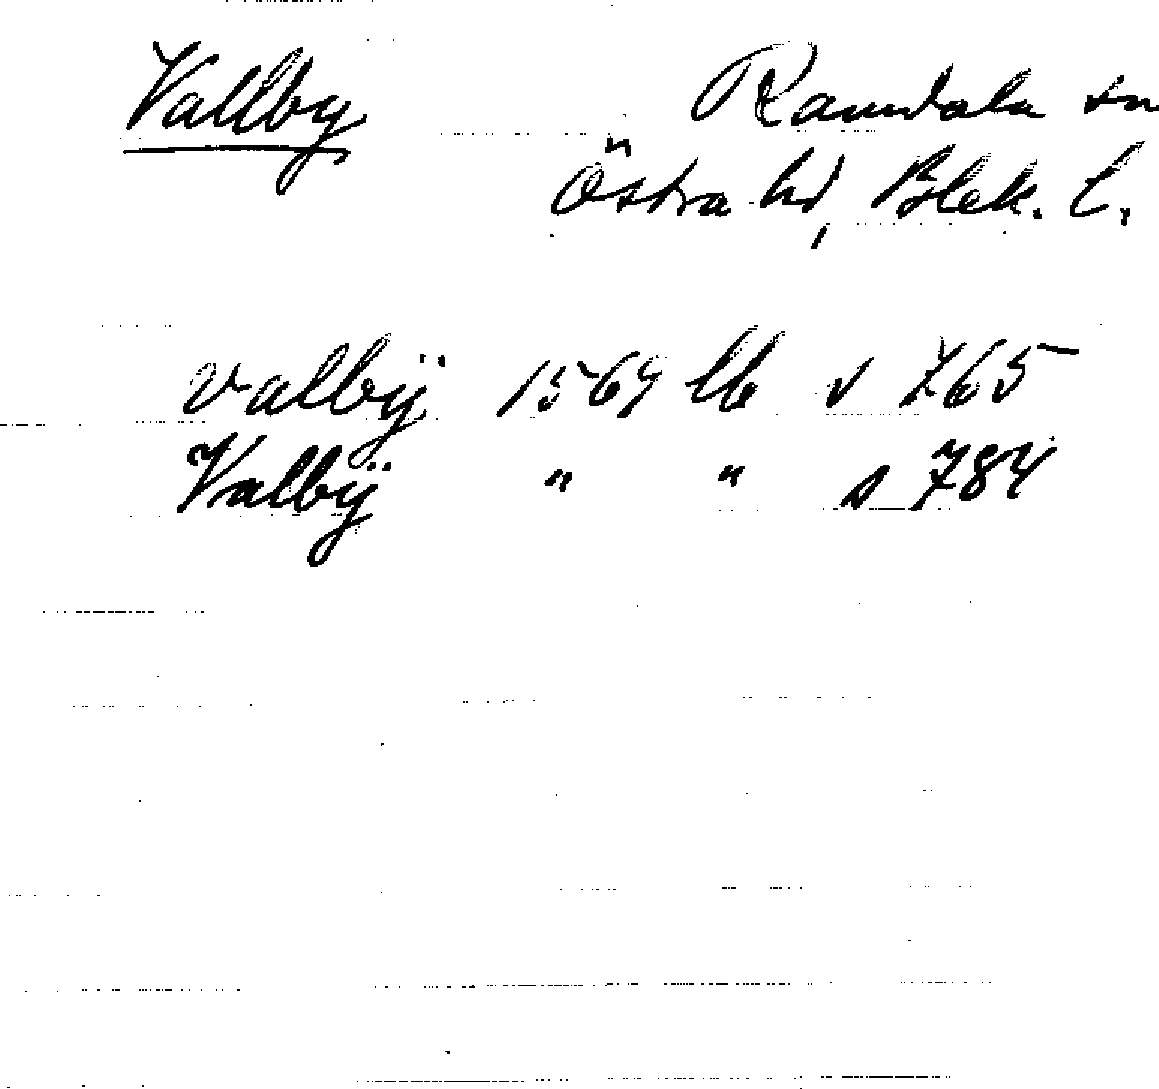 Vallby Ramdala sn
Östra hd, Blek. l.
Valbÿ 1569 lb s 765
Valbÿ " " s 784